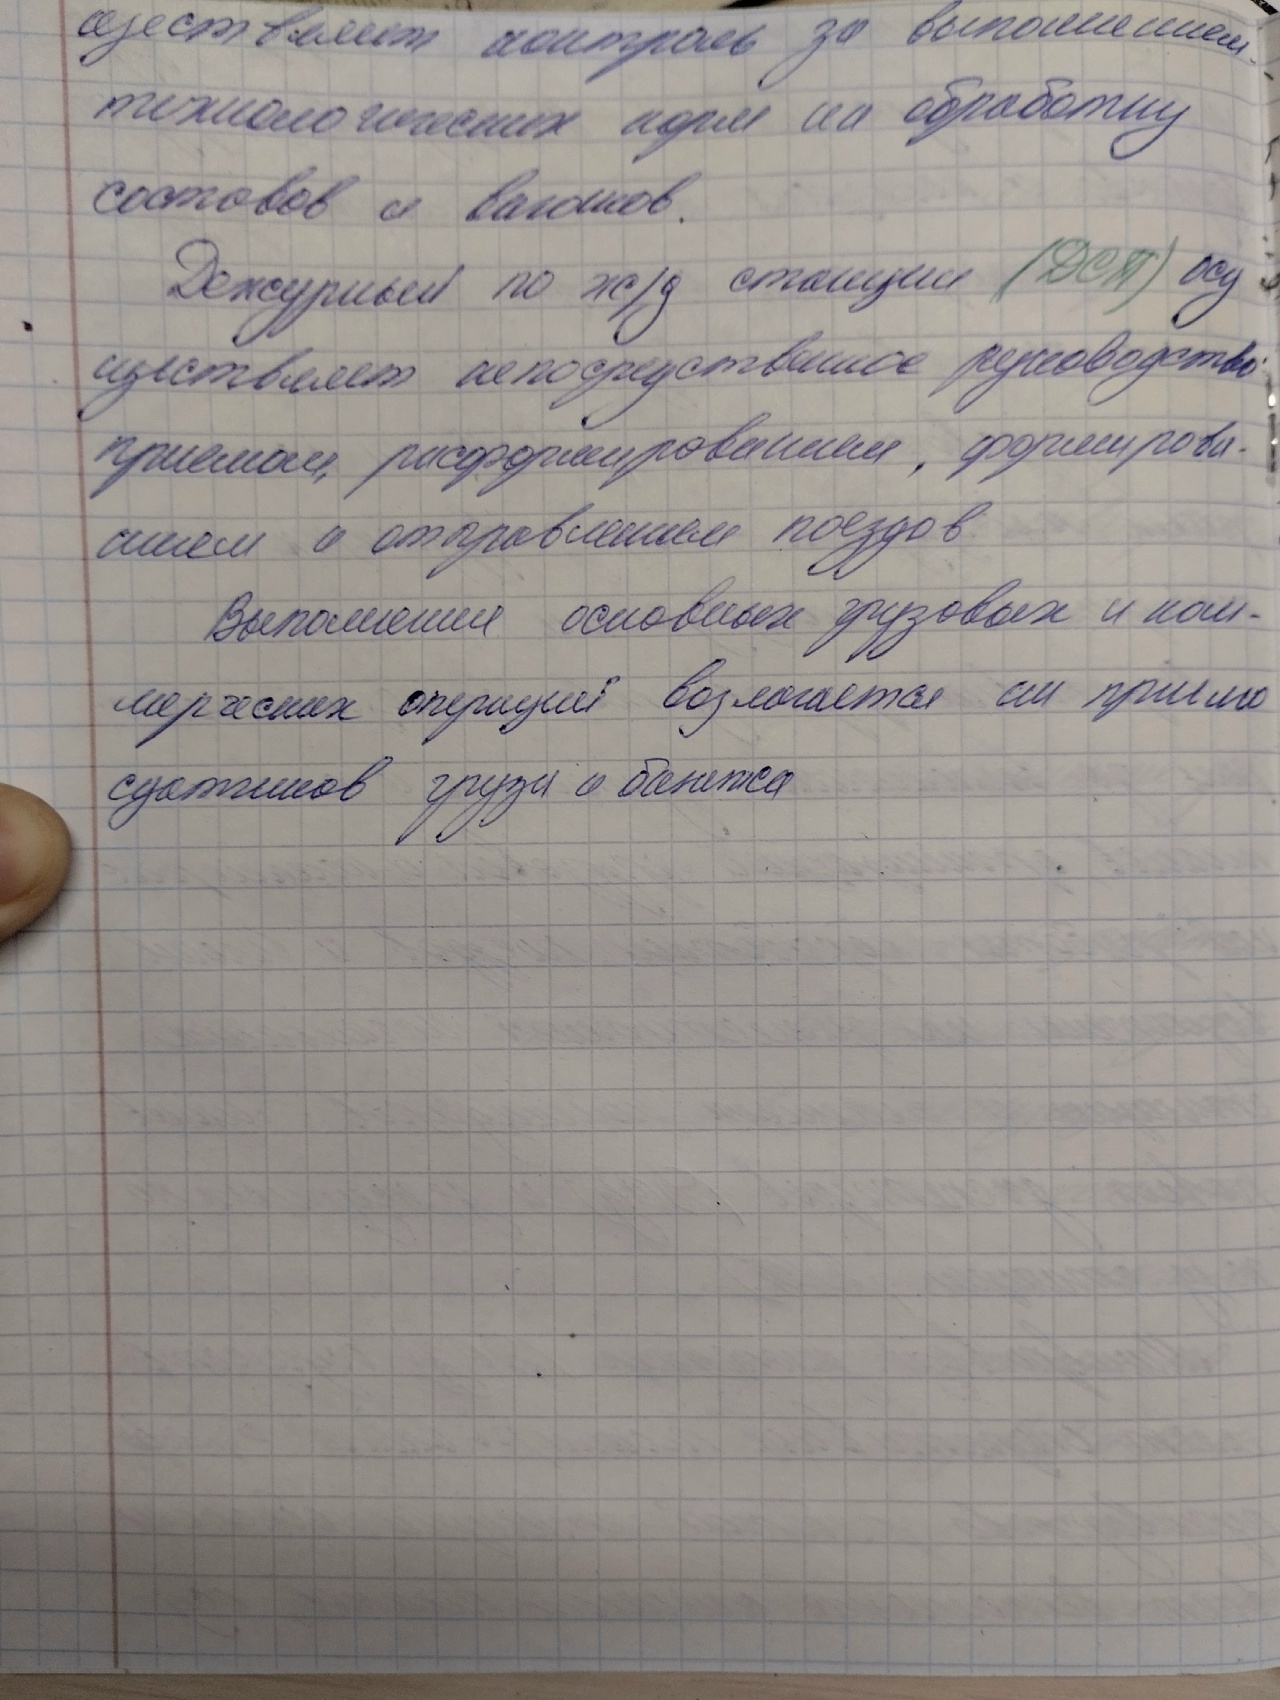 ществляет контроль за выполнением
технологических норм на обработку
составов и вагонов.
Дежурный по ж/д станции (ДСП) осу
ществляет непосредственное руководство
приемом, расформированием, формирова-
нием и отправлением поездов
Выполнение основных грузовых и ком-
мерческих операций возлогается на приемо
сдатчиков груза и багажа